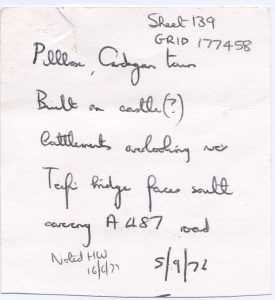 Sheet 139
GRID 177458
Pillbox, Cardigan town
Built on castle(?)
Battlements overlooking river
Teifi bridge faces south
covering A487 road
Noted HW
5/9/72